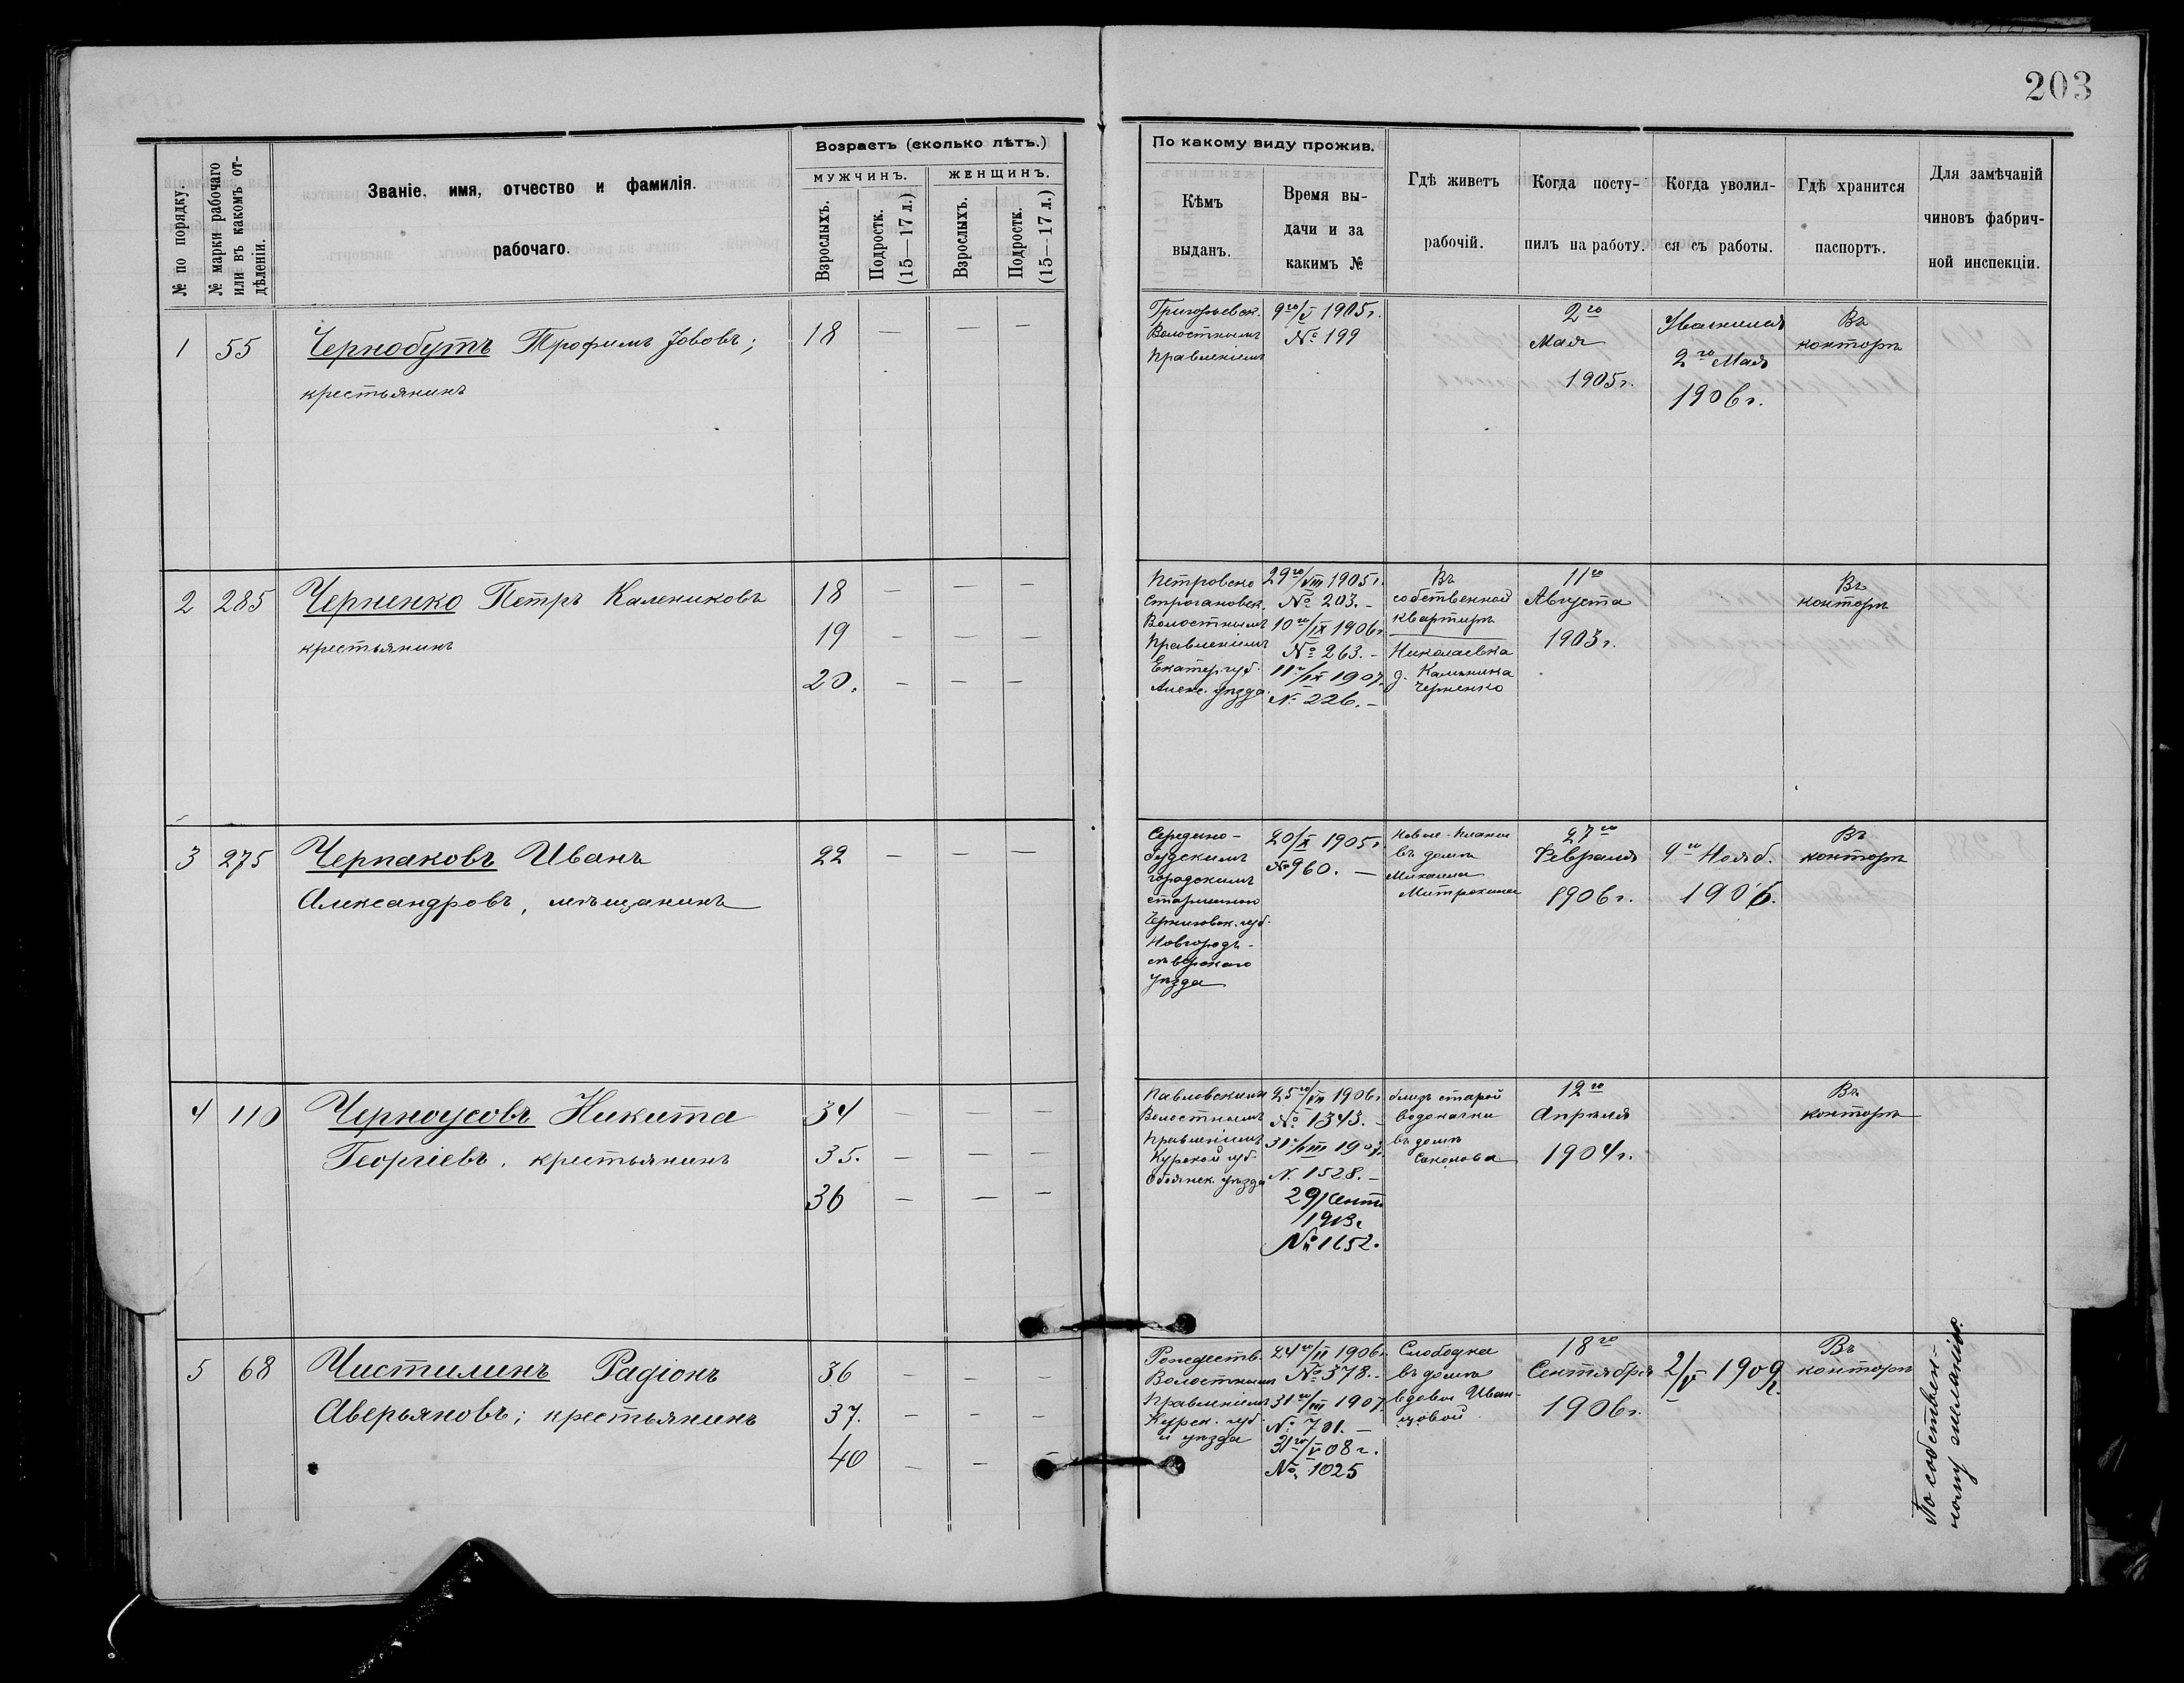 203
№ по порядку.
№ марки рабочаго
или въ какомъ от-
дѣленіи.
Званіе, имя, отчество и фамилія.
рабочаго.
Возрастъ (сколько лѣтъ.)
МУЖЧИНЪ.
ЖЕНЩИНЪ.
Взрослыхъ.
Подростк.
(15—17 л.)
Взрослыхъ.
Подростк.
(15—17 л.)
По какому виду прожив.
Кѣмъ
выданъ.
Время вы-
дачи и за
какимъ №
Гдѣ живетъ
рабочій.
Когда посту-
пилъ на работу.
Когда уволил-
ся съ работы.
Гдѣ хранится
паспортъ.
Для замѣчаній
чиновъ фабрич-
ной инспекціи.
1 55 Чернобутъ Трофимъ Іововъ;
крестьянинъ
18 — — —
Григорьевск.
Волостнымъ
Правленіемъ
9го/V 1905г.
№ 199
2го
Мая
1905г.
2го Мая
1906г.
Въ
конторѣ
2 285 Черненко Петръ Калениковъ
крестьянинъ
18 — — —
19 — — —
20. — — —
Петровско
Строгановск.
Волостнымъ
Правленіемъ
Екатер. губ.
Алекс. уѣзда.
29го/VIII 1905г.
№ 203. —
10го/IX 1906г
№ 263. —
11го/IX 1907.
№ 226. —
Въ
собственной
квартирѣ
Николаевка
д. Каленика
Черненко
11го
Августа
1903г.
Въ
конторѣ
3 275 Черпаковъ Иванъ
Александровъ, мѣщанинъ
22 — — —
Середино-
Будскимъ
городскимъ
старшиною
Черниговск. губ.
Новгородъ-
сѣверскаго
уѣзда
20/X 1905г.
№ 960. —
Новые-Планы
въ домѣ
Михаила
Митрохина
27го
Февраля
1906г.
9го Нояб.
1906.
Въ
конторѣ
4 110 Черноусовъ Никита
Георгіевъ, крестьянинъ
34 — — —
35. — — —
36 — — —
Павловскимъ
Волостнымъ
Правленіемъ
Курской губ.
Обоянск. уѣзда
1906г.
№ 1343. —
31го/VIII 1907.
№ 1528. —
29/Сент.
№ 1652.
близъ старой
водокачки
въ домѣ
Соколова
12го
Апрѣля
1904г.
Въ
конторѣ
5 68 Чистилинъ Радіонъ
Аверьяновъ; крестьянинъ
36 — — —
37. — — —
40 — — —
Рождеств.
Волостнымъ
Правленіемъ
Курск. губ.
и уѣзда
1906г.
№ 378. —
31го/VIII 1907
№ 701. —
31го/V 08г.
№ 1025
Слободка
въ домѣ
вдовы Иван-
цовой
18го
Сентября
1906г.
2/V 1909г.
Въ
конторѣ
По собствен-
ному желанію.